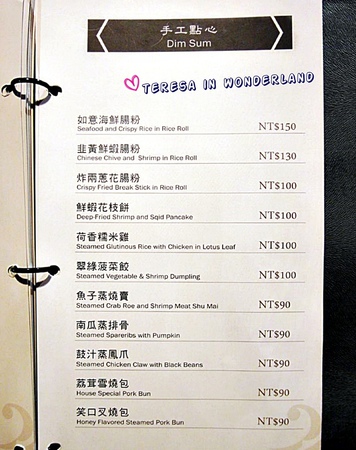 手工點心
Dim Sum
TERESA IN WONDERLAND
如意海鮮腸粉
Seafood and Crispy Rice in Rice Roll NT$150
韭黃鮮蝦腸粉
Chinese Chive and Shrimp in Rice Roll NT$130
炸兩蔥花腸粉
Crispy Fried Break Stick in Rice Roll NT$100
鮮蝦花枝餅
Deep-Fried Shrimp and Sqid Pancake NT$100
荷香糯米雞
Steamed Glutinous Rice with Chicken in Lotus Leaf NT$100
翠綠菠菜餃
Steamed Vegetable & Shrimp Dumpling NT$100
魚子蒸燒賣
Steamed Crab Roe and Shrimp Meat Shu Mai NT$90
南瓜蒸排骨
Steamed Spareribs with Pumpkin NT$90
鼓汁蒸鳳爪
Steamed Chicken Claw with Black Beans NT$90
荔茸雪燒包
House Special Pork Bun NT$90
笑口叉燒包
Honey Flavored Steamed Pork Bun NT$90